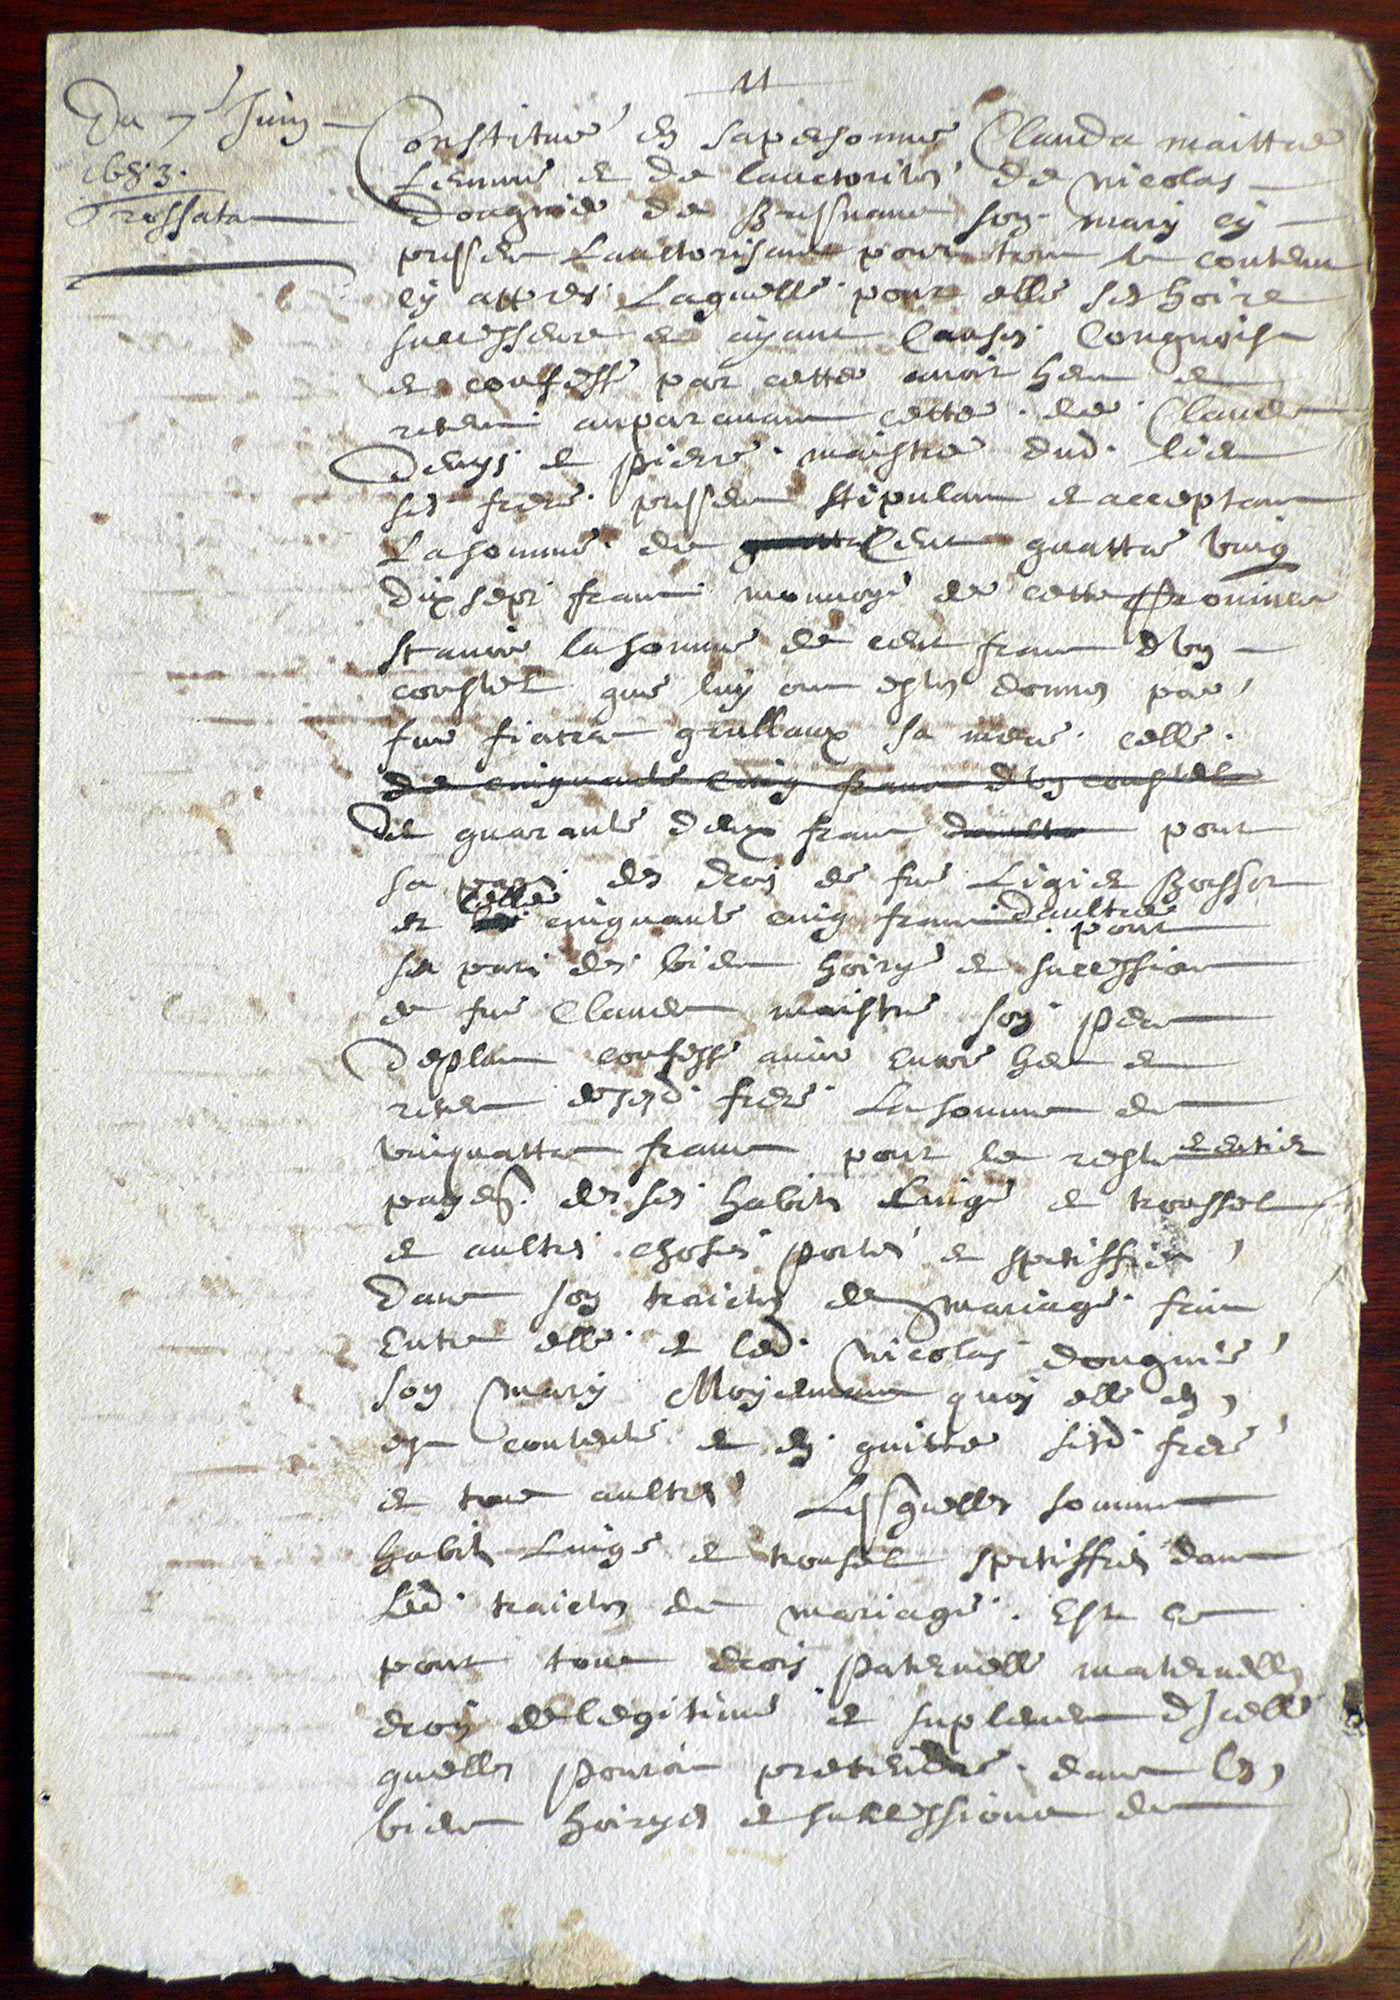 11
Du 7e Juin
1683.
Grossata
Constitue en sa personne Clauda maittre
femme et de lauctorite de Nicolas
Dougnie de son mary cy
present Lauctorisant pour tout le contenu
cy appres Laquelle pour elle ses hoirs
successeurs et ayant causes Congnoist
et confesse par cette avoir heu et
receu auparavant cette de Claude
Denys et Pierre maistre dud. lieu
ses freres present stipulant et acceptant
La somme de Cent quattre vingt
dix sept franc monnoye de cette province
scavoir la somme de cent franc d'un
costel que luy ont estes donnes par
fut grullaux sa mere celle
de cinquante cinq franc d'un costel
de quarante deux franc daultre pour
sa part des drois de fut Ligier
et celle cinquante cinq franc daultre pour
sa part des biens hoirye et succession
de fut Claude maistre son pere
De plus confesse avoir encor heu et
receu de sesd. freres La somme de
vingquattre franc pour le reste et entier
payem. de ses habits linge et troussel
et aultres choses portes et spetiffies
dans son traictes de mariage fait
Entre elle et led. Nicolas dougnie
son mary Moyennant quoy elle en
est contente et en quitte sesd. freres
et tous aultres Lesquelles sommes
habits linge et trousel spetiffies dans
led. traictes de mariage. Est ce
pour tous drois paternelle maternelles
droy de legitime et suplement d'Icelle
quelles pouroit pretendre dans les
biens hoiryes et successions de